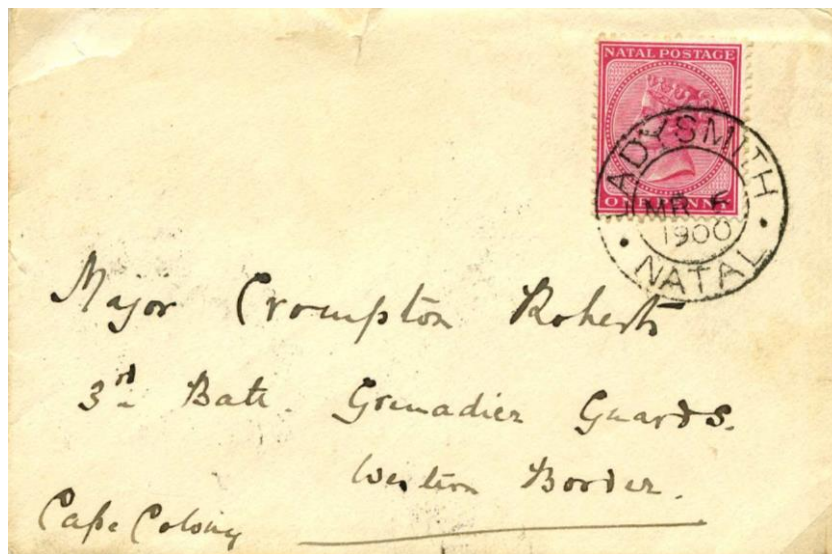 NATAL POSTAGE
ONE PENNY
LADYSMITH
MR 5
1900
NATAL
Major Crompton Roberts
3rd Batt. Grenadier Guards.
Western Border.
Cape Colony